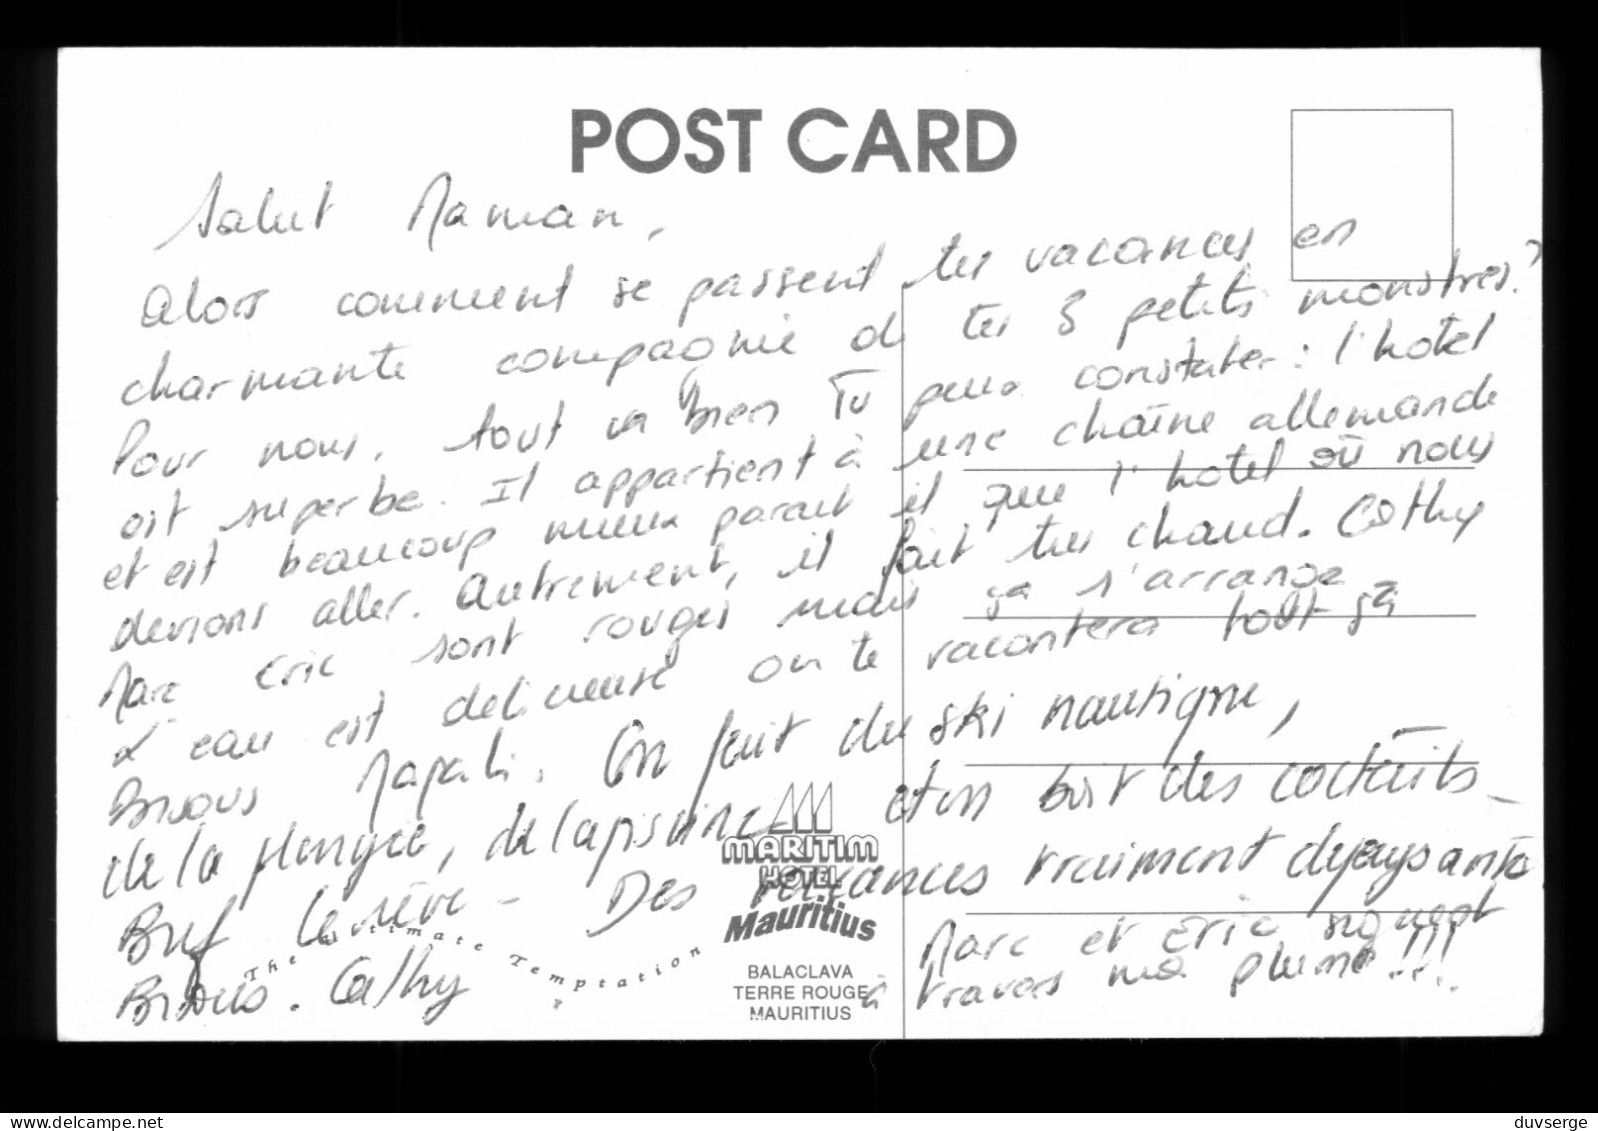 POST CARD
Salut Maman,
Alors comment se passent tes vacances en
charmante compagnie de tes 3 petits monstres ?
Pour nous, tout va bien Tu peux constater : l'hotel
est superbe. Il appartient à une chaîne allemande
et est beaucoup mieux parait il que l'hotel où nous
devions aller. Autrement, il fait très chaud. Cathy
Marc Eric sont rouges mais ça s'arrange
L'eau est delicieuse on te racontera tout ça
Bisous On fait du ski nautique,
de la plongée, de la piscine et on boit des cocktails _
Bref le rêve - Des vacances vraiment dépaysante
Bisous. Cathy
Marc et Eric signent
à travers ma plume !!!
The Ultimate Temptation
MARITIM
HOTEL
Mauritius
BALACLAVA
TERRE ROUGE
MAURITIUS
delcampe.net
duvserge